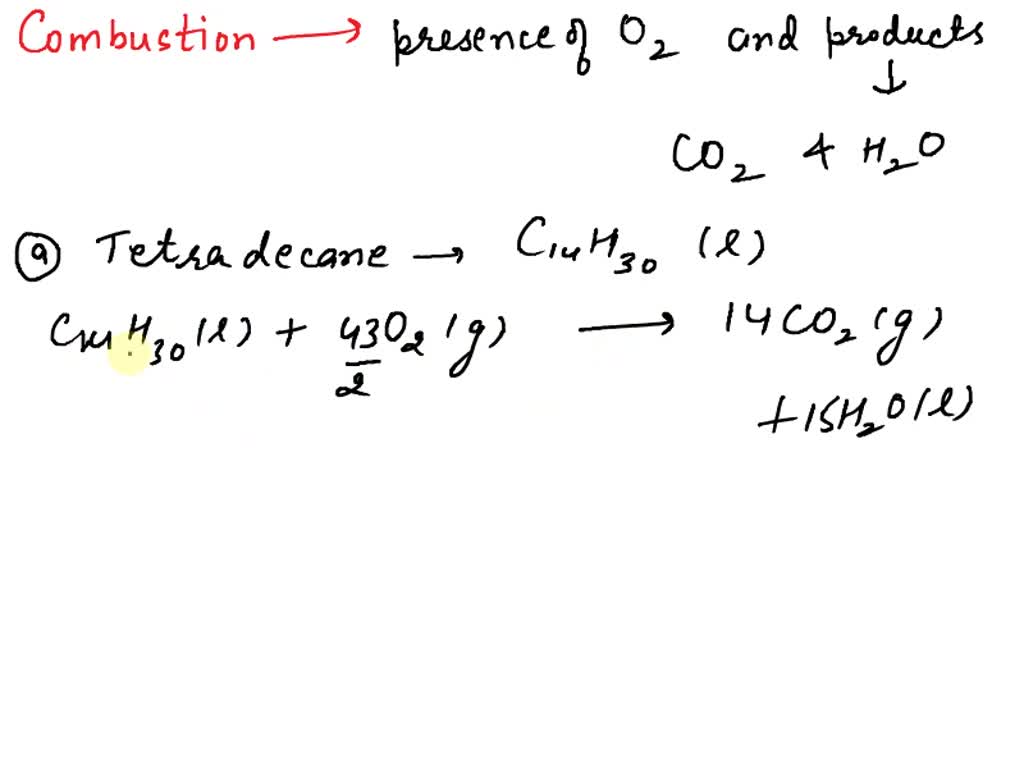 Combustion → presence of O₂ and products
↓
CO₂ & H₂O
(a) Tetradecane → C₁₄H₃₀ (l)
C₁₄H₃₀ (l) + 43/2 O₂ (g) → 14CO₂ (g)
+ 15H₂O (l)